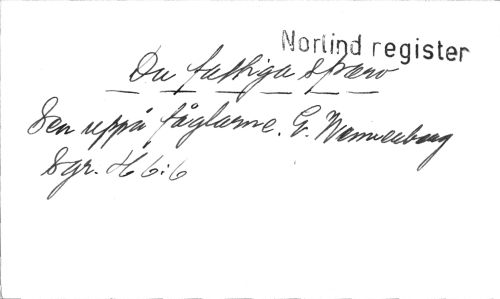 Norlind register
Du fattiga sparv
Sen uppå fåglarne. G. Wennerberg
Sgr. H 6:6